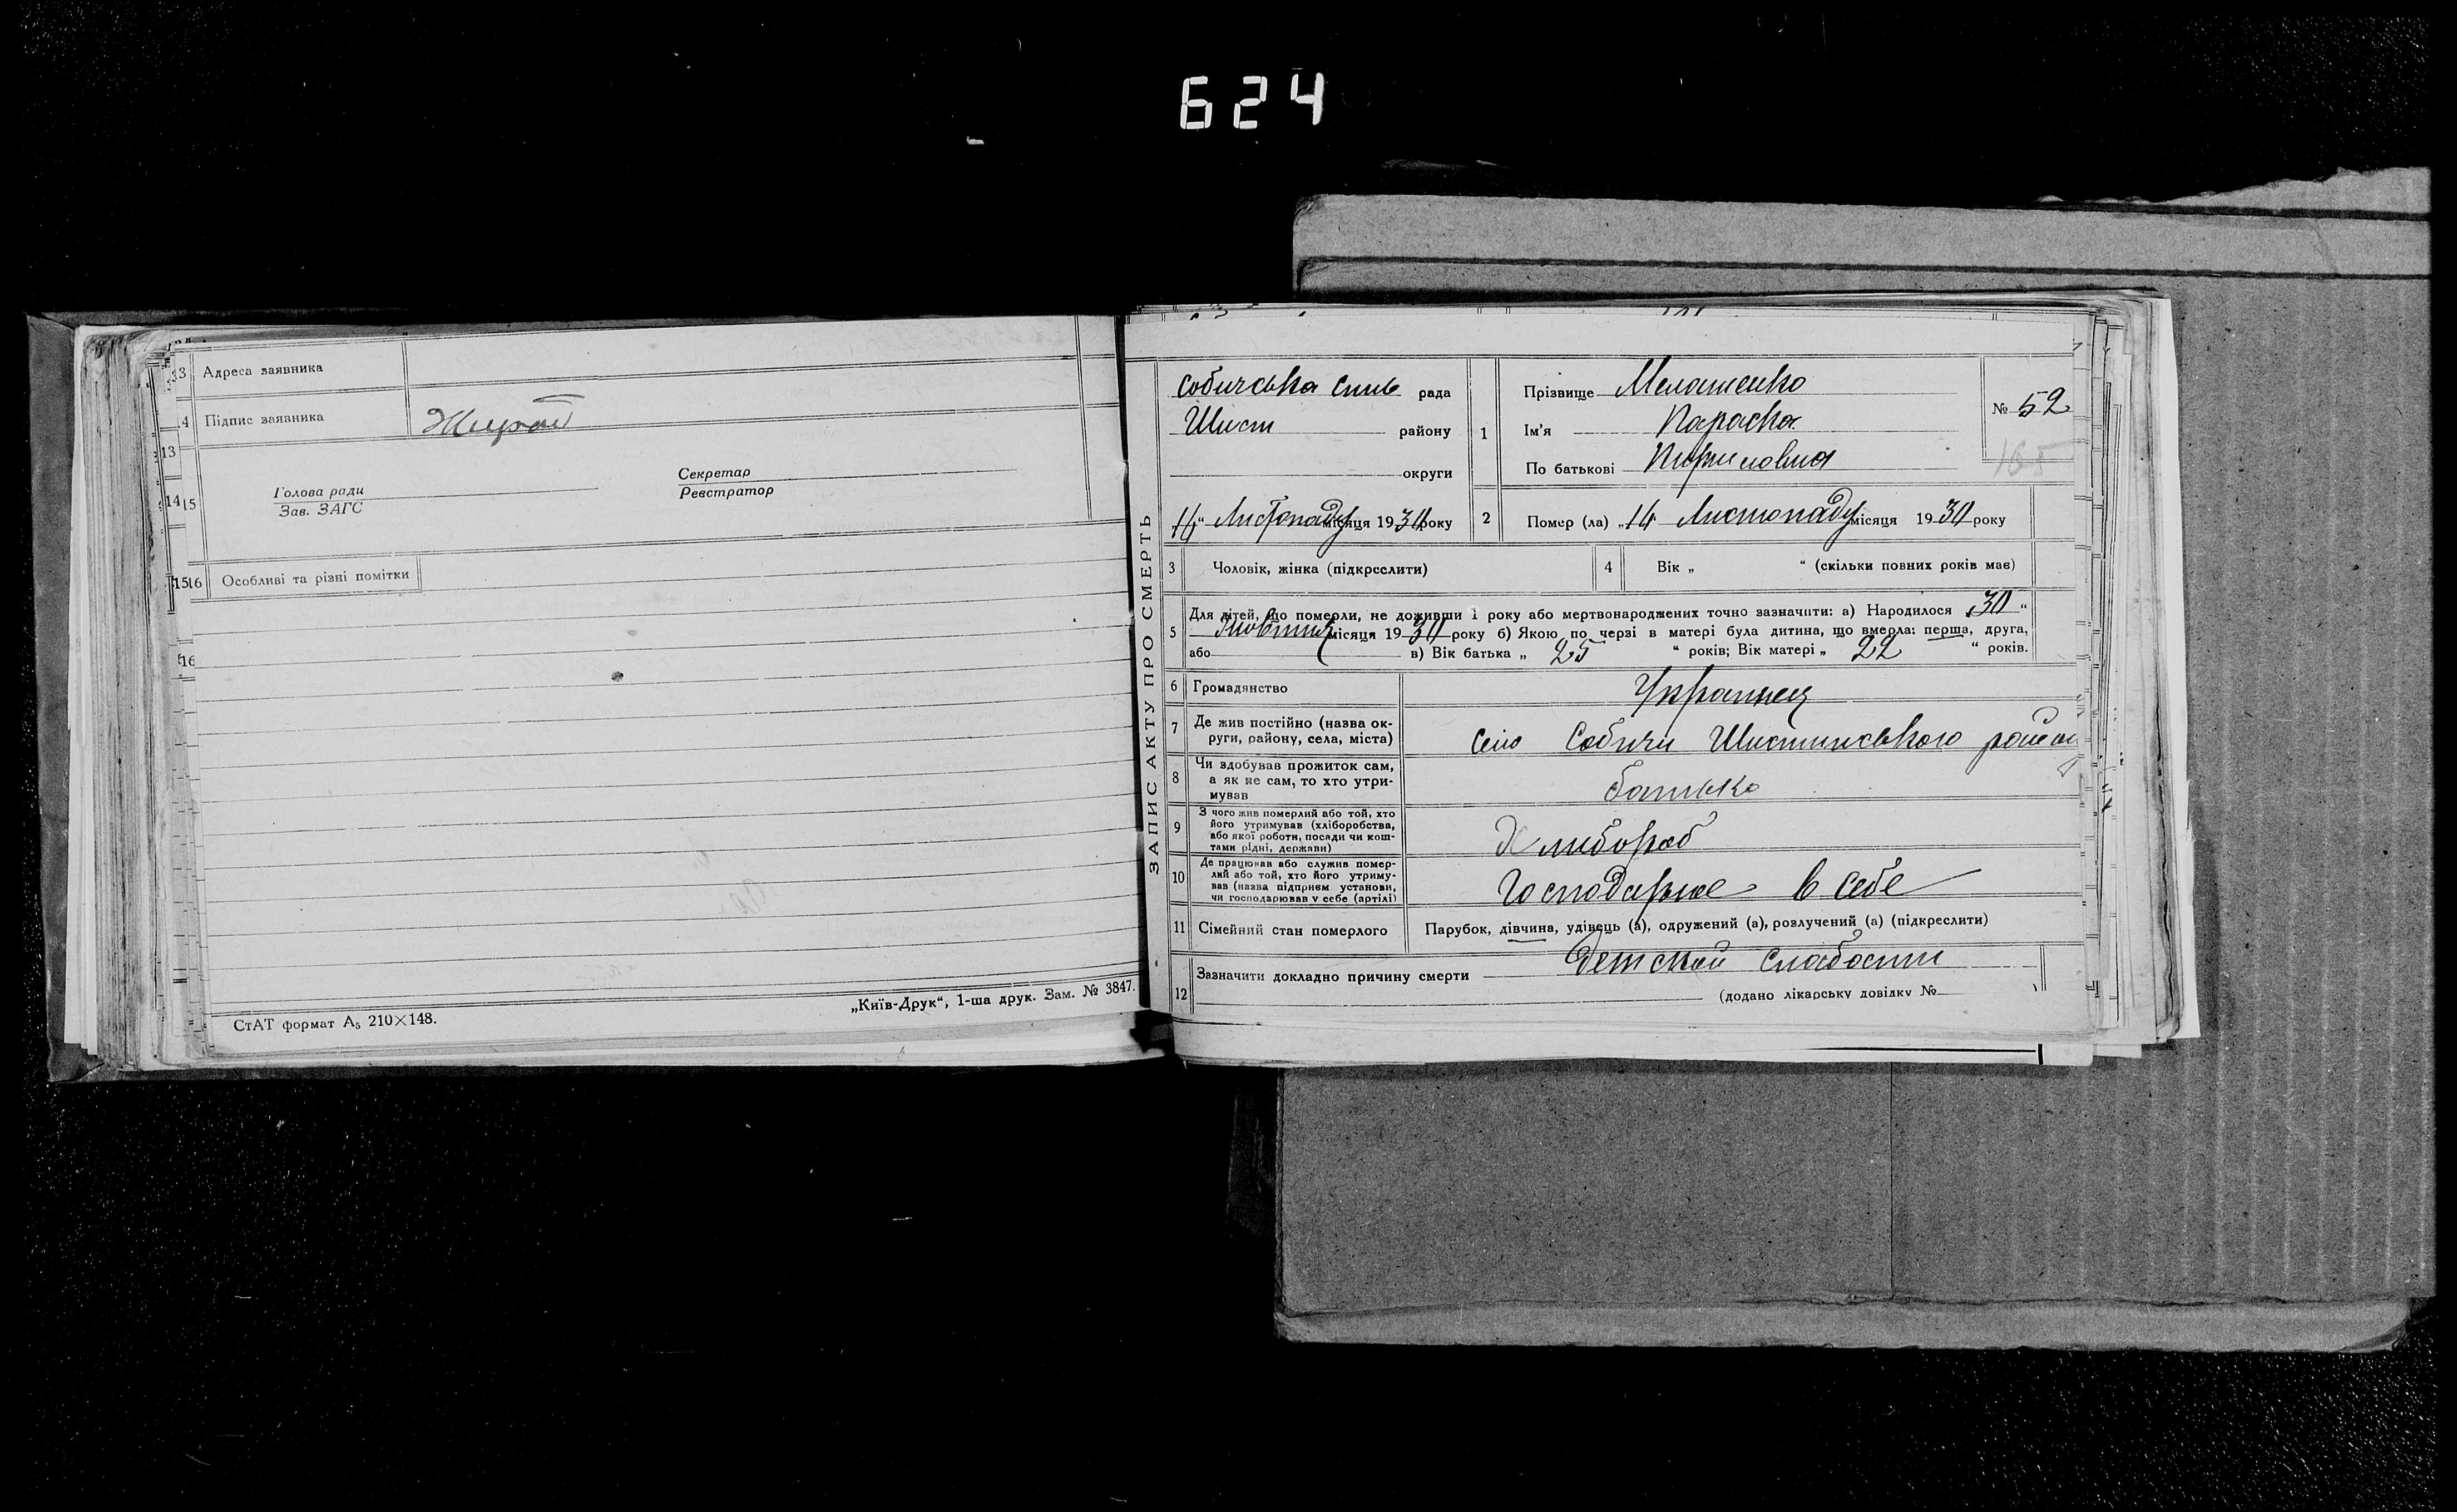 624
13 Адреса заявника
14 Підпис заявника
Голова ради
Зав. ЗАГС
Секретар
Реєстратор
15
16 Особливі та різні помітки
СтАТ формат А₅ 210×148.
„Київ-Друк“, 1-ша друк. Зам. № 3847.
ЗАПИС АКТУ ПРО СМЕРТЬ
Собичська рада
Шист району
округи
„14“ Листопаду місяця 1930 року
1 Прізвище Мелашенко
Ім'я Параска
По батькові Кириловна
№ 52
165
2 Помер (ла) „14“ Листопаду місяця 1930 року
3 Чоловік, жінка (підкреслити)
4 Вік „ “ (скільки повних років має)
5 Для дітей, що померли, не доживши 1 року або мертвонароджених точно зазначити: а) Народилося „30“
Жовтня місяця 1930 року б) Якою по черзі в матері була дитина, що вмерла: перша, друга,
або в) Вік батька „ 25 “ років; Вік матері „ 22 “ років.
6 Громадянство Украинец
7 Де жив постійно (назва ок-
руги, району, села, міста)
село Собичи Шистинського району
8 Чи здобував прожиток сам,
а як не сам, то хто утри-
мував
батько
9 З чого жив померлий або той, хто
його утримував (хліборобства,
або якої роботи, посади чи кош-
тами рідні, держави)
Хлибороб
10 Де працював або служив помер-
лий або той, хто його утриму-
вав (назва підприєм установи,
чи господарював у себе (артілі)
Господарюе в себе
11 Сімейний стан померлого Парубок, дівчина, удівець (а), одружений (а), розлучений (а) (підкреслити)
12 Зазначити докладно причину смерти Детской слабости
(додано лікарську довідку №